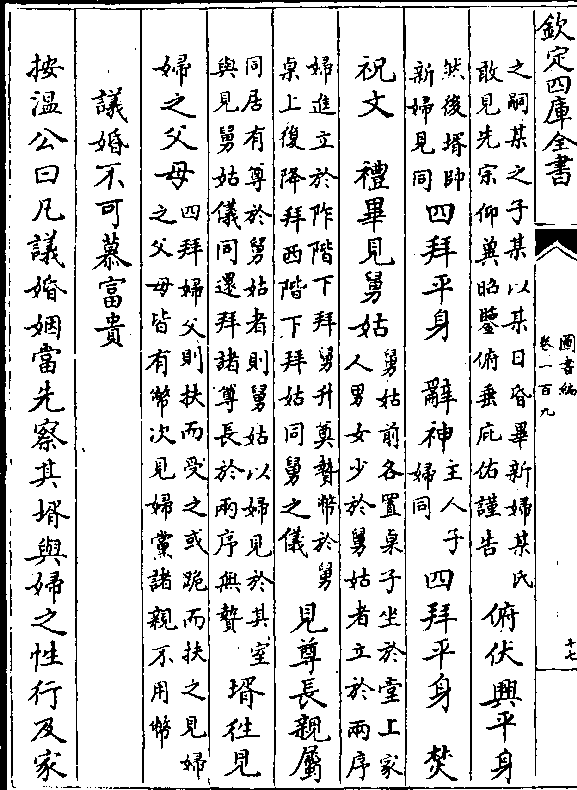 欽定四庫全書
圖書編
卷一百九
十七
之嗣某之子某以某日昏畢新婦某氏
敢見先宗仰兾昭鑒俯垂庇佑謹告
俯伏興平身
然後壻帥
新婦見同
四拜平身 辭神
主人子
婦同
四拜平身 焚
祝文 禮畢見舅姑
舅姑前各置桌子坐於堂上家
人男女少於舅姑者立於兩序
婦進立於阼階下拜舅升奠贄幣於舅
桌上復降拜西階下拜姑同舅之儀
見尊長親屬
同居有尊於舅姑者則舅姑以婦見於其室
與見舅姑儀同還拜諸尊長於兩序無贄
壻徃見
婦之父母
四拜婦父則扶而受之或跪而扶之見婦
之父母皆有幣次見婦黨諸親不用幣
議婚不可慕富貴
按溫公曰凡議婚姻當先察其壻與婦之性行及家